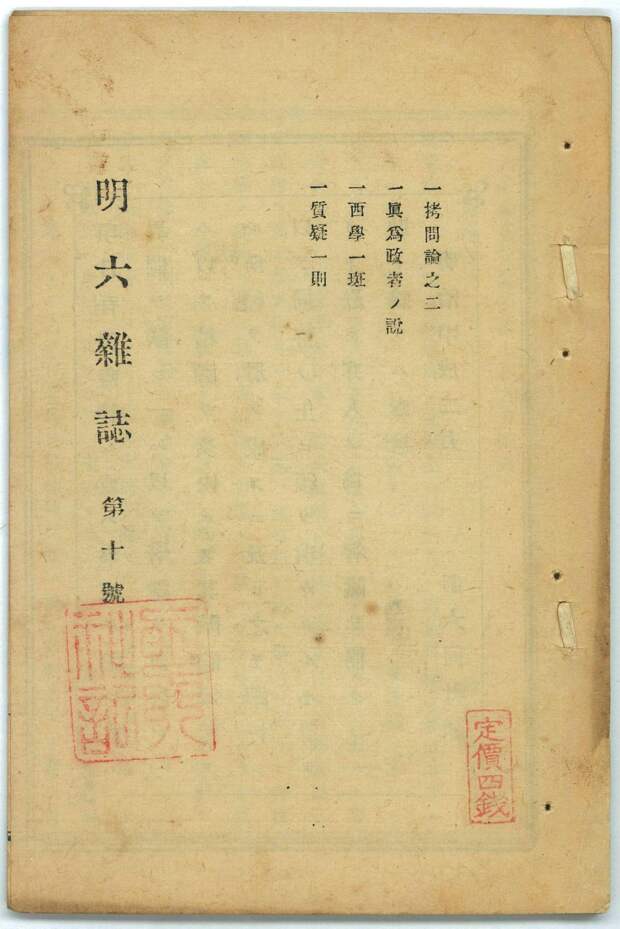 一拷問論之二
一眞爲政者ノ說
一西學一斑
一質疑一則
明六雜誌 第十號
定價四錢